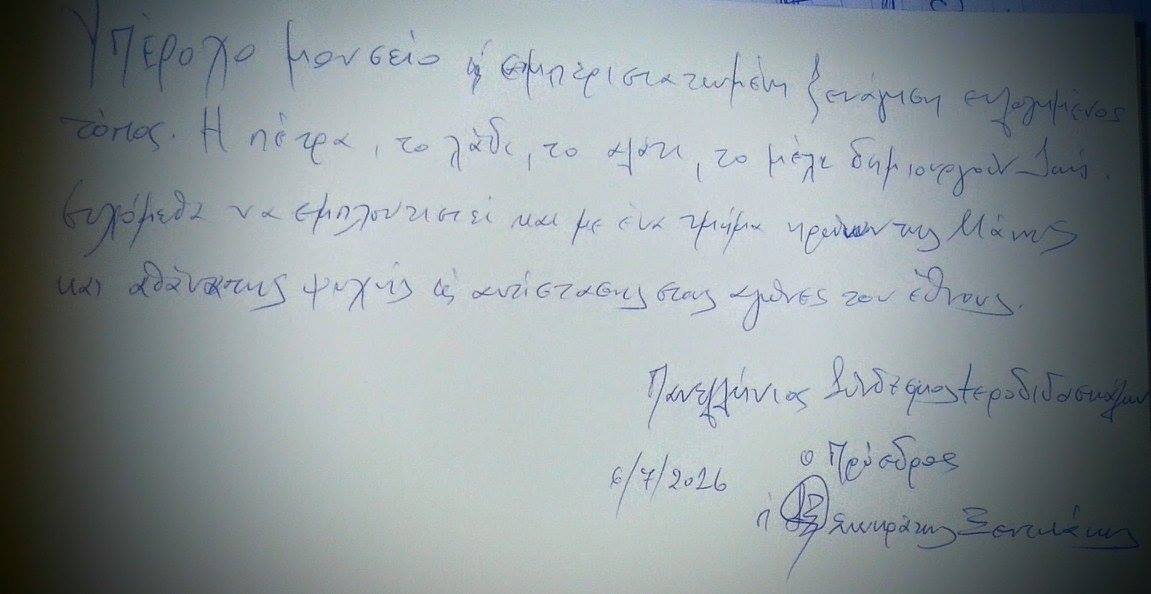 Υπέροχο μουσείο & εμπεριστατωμένη ξενάγηση ευλογημένος
τόπος. Η πέτρα, το λάδι, το αλάτι, το μέλι δημιουργούν
ευχόμεθα να εμπλουτιστεί και με ένα τμήμα ηρώων της Μάνης
και αθάνατης ψυχής & αντίστασης στους αγώνες του έθνους.
Πανελλήνιος Σύνδεσμος Ιεροδιδασκάλων
ο Πρόεδρος
6/7/2016